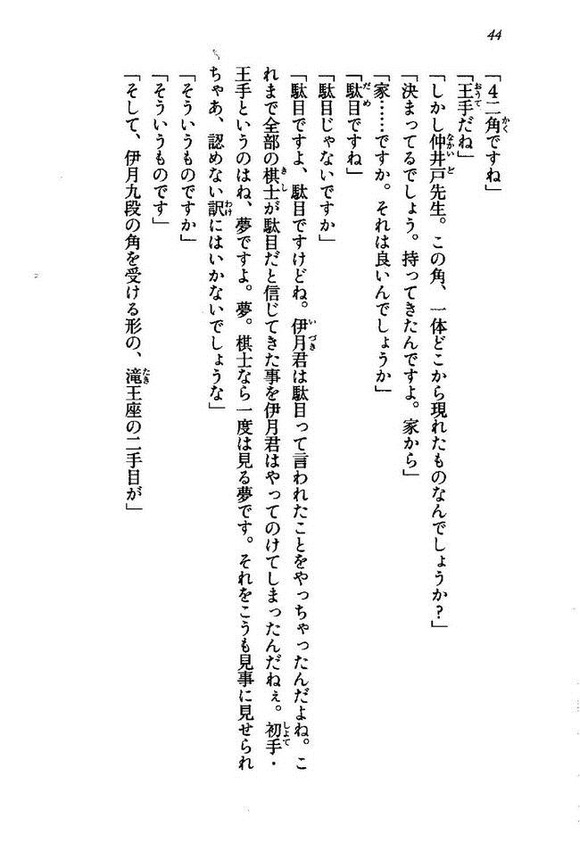 44
「4二角ですね」
「王手だね」
「しかし仲井戸先生。この角、一体どこから現れたものなんでしょうか?」
「決まってるでしょう。持ってきたんですよ。家から」
「家……ですか。それは良いんでしょうか」
「駄目ですね」
「駄目じゃないですか」
「駄目ですよ、駄目ですけどね。伊月君は駄目って言われたことをやっちゃったんだよね。こ
れまで全部の棋士が駄目だと信じてきた事を伊月君はやってのけてしまったんだねぇ。初手・
王手というのはね、夢ですよ。夢。棋士なら一度は見る夢です。それをこうも見事に見せられ
ちゃあ、認めない訳にはいかないでしょうな」
「そういうものですか」
「そういうものです」
「そして、伊月九段の角を受ける形の、滝王座の二手目が」